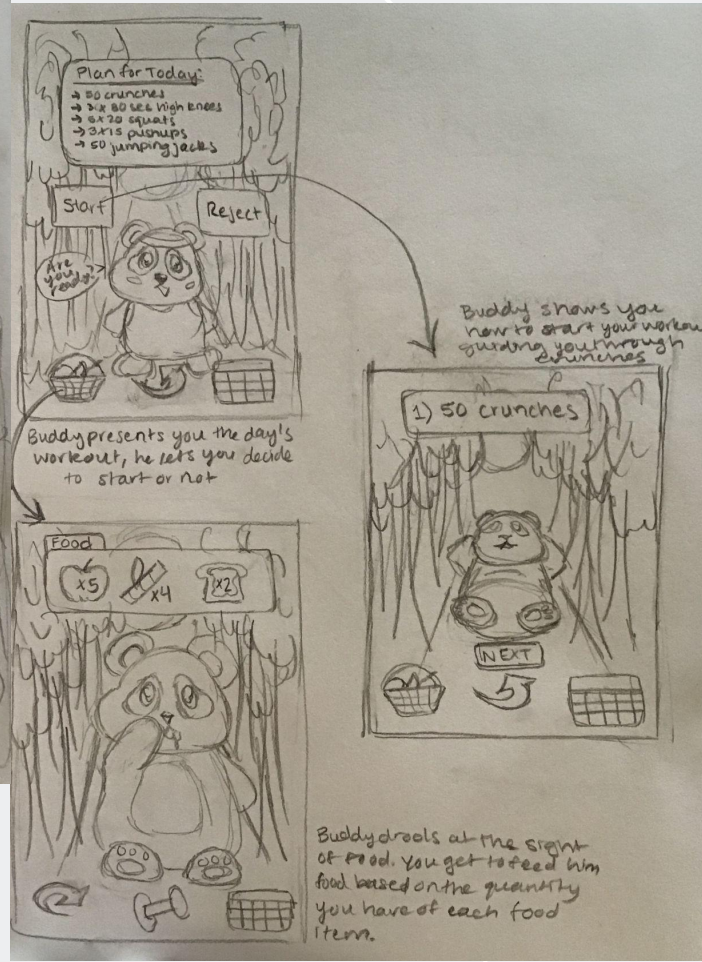 Plan for Today:
→ 50 crunches
→ 30 sec high knees
→ 20 squats
→ 3x15 pushups
→ 50 jumping jacks
Start
Reject
Are
you
ready?
5
Buddy presents you the day's
workout, he lets you decide
to start or not
Buddy shows you
how to start your workou
guiding you through
crunches
1) 50 crunches
NEXT
5
Food
x5
x4
x2
Buddy drools at the sight
of food. You get to feed him
food based on the quantity
you have of each food
item.